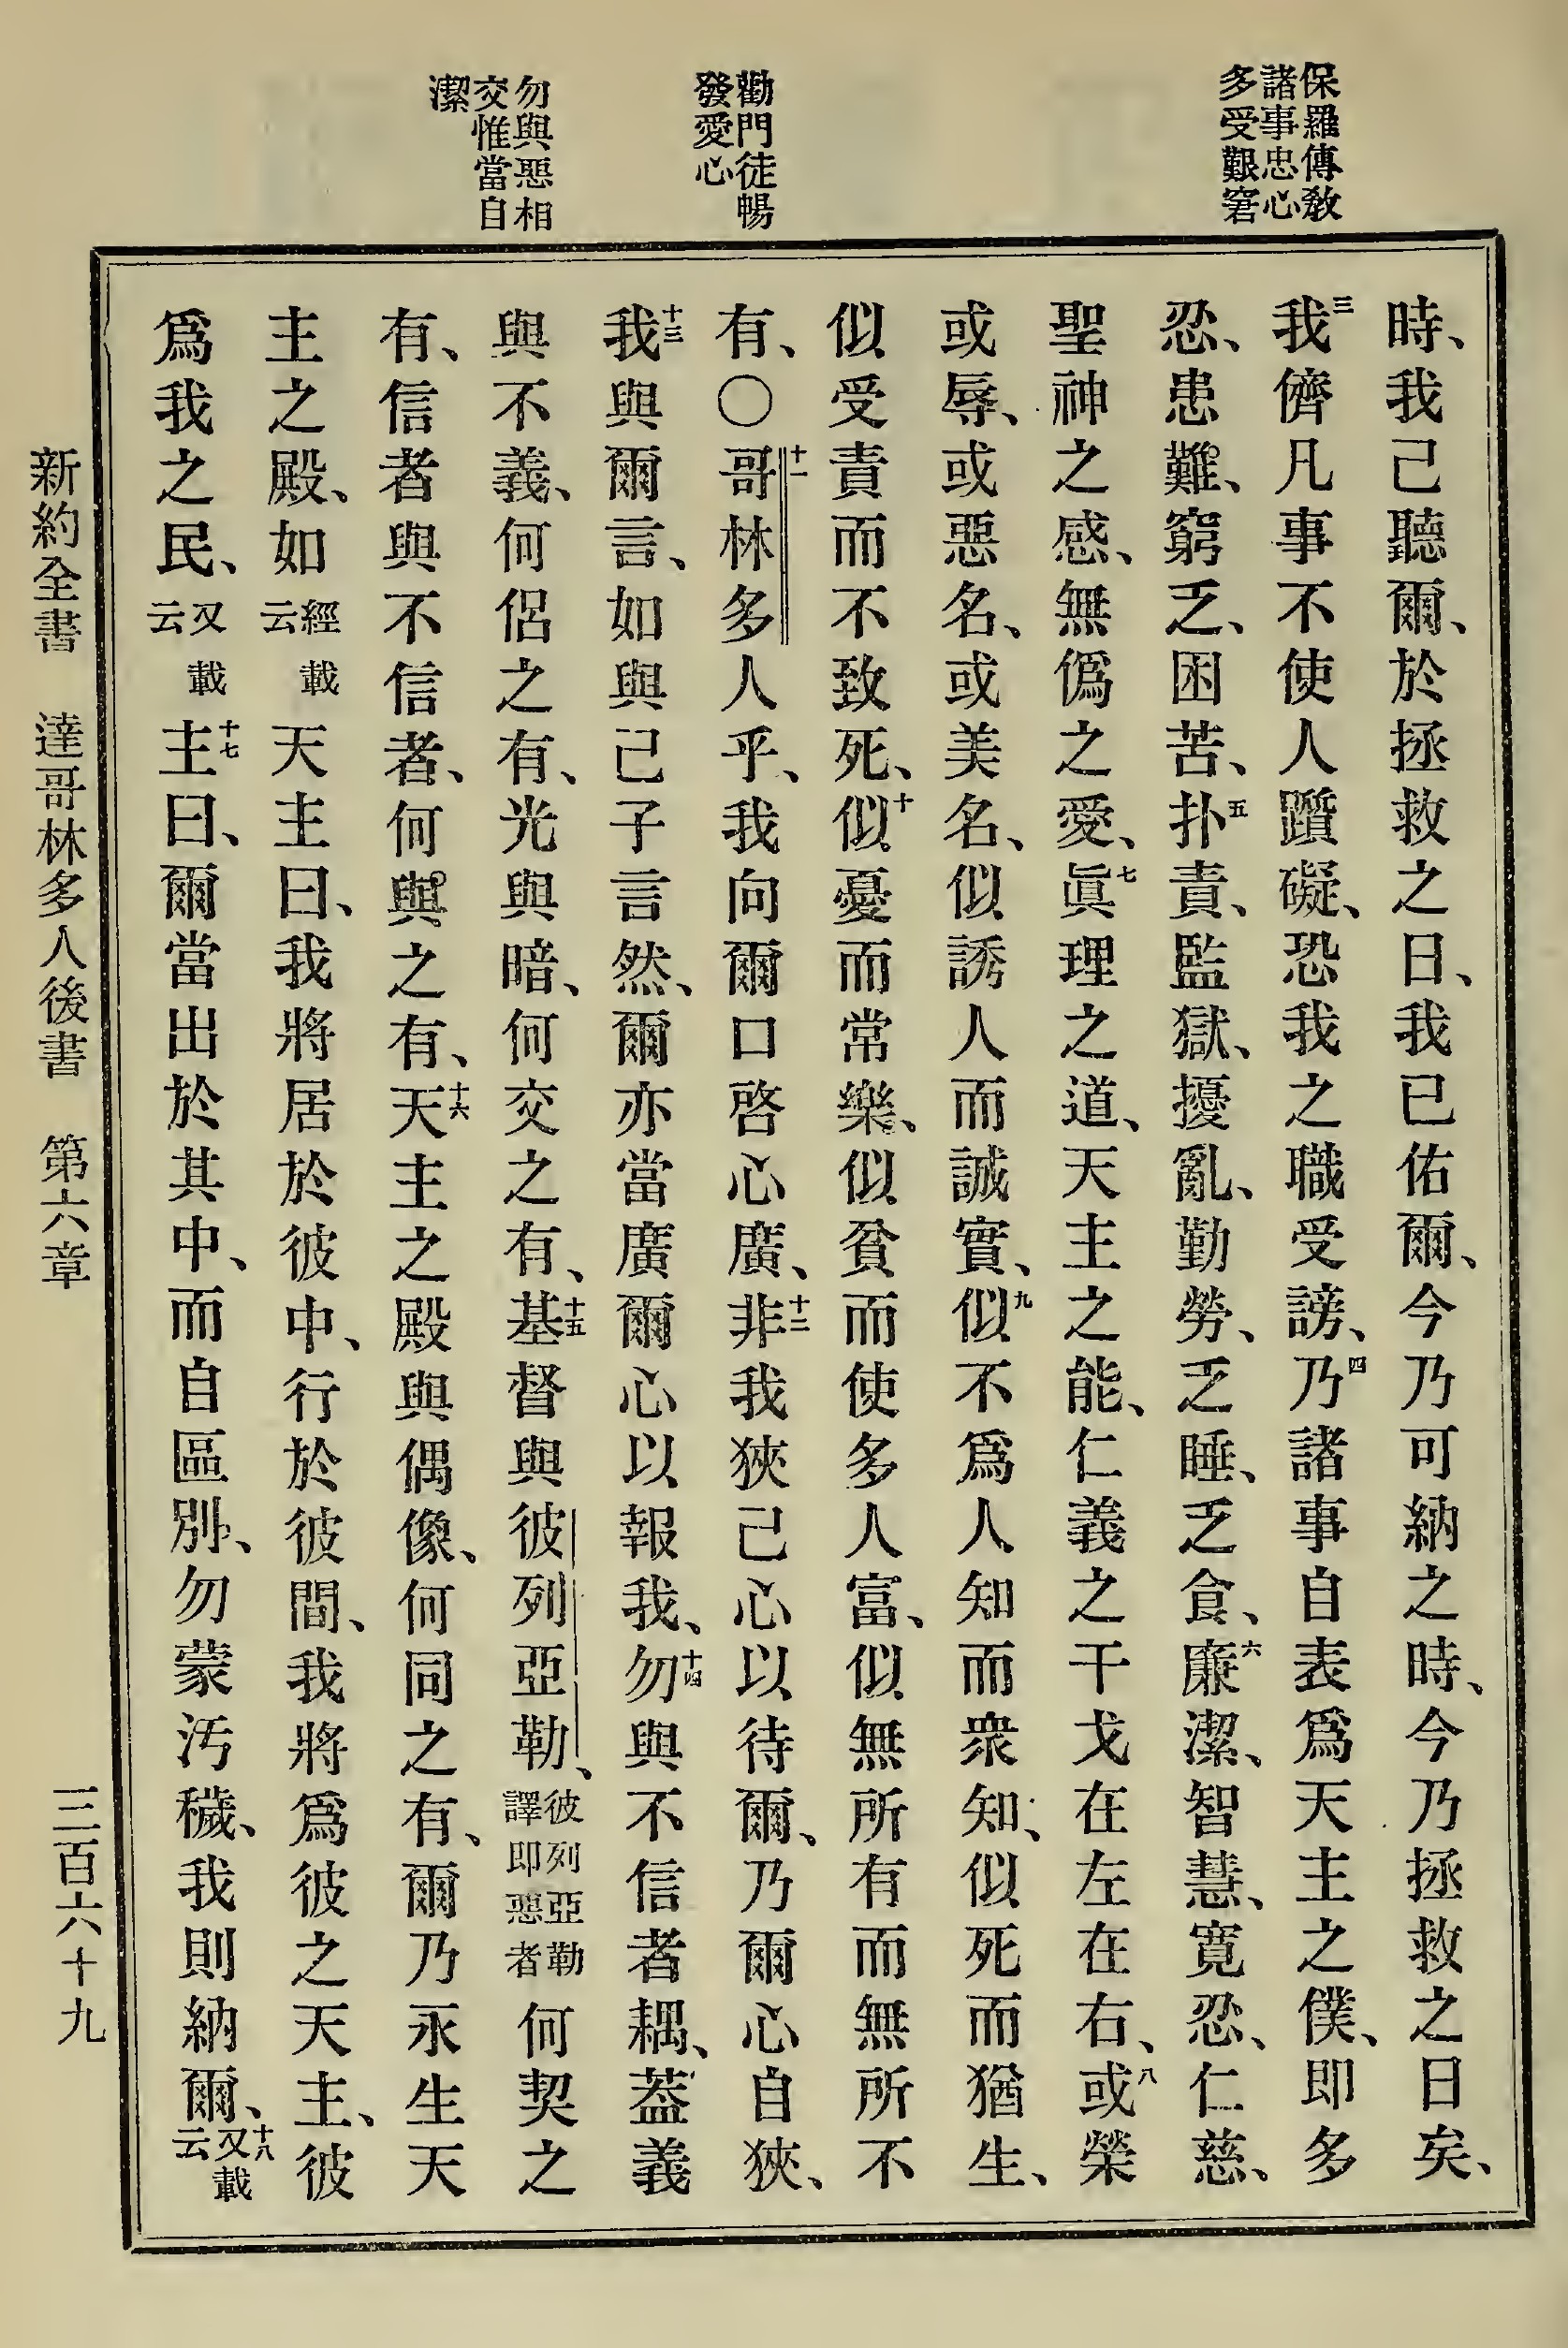 保羅傳教
諸事忠心
多受艱窘
勸門徒暢
發愛心
勿與惡相
交惟當自
潔
時、我已聽爾、於拯救之日、我已佑爾、今乃可納之時、今乃拯救之日矣、
三我儕凡事不使人躓礙、恐我之職受謗、四乃諸事自表爲天主之僕、卽多
忍、患難、窮乏、困苦、五扑責、監獄、擾亂、勤勞、乏睡、乏食、六廉潔、智慧、寬忍、仁慈、
聖神之感、無僞之愛、七眞理之道、天主之能、仁義之干戈在左在右、八或榮
或辱、或惡名、或美名、似誘人而誠實、九似不爲人知而衆知、似死而猶生、
似受責而不致死、十似憂而常樂、似貧而使多人富、似無所有而無所不
有、〇十一哥林多人乎、我向爾口啓心廣、十二非我狹己心以待爾、乃爾心自狹、
十三我與爾言、如與己子言然、爾亦當廣爾心以報我、十四勿與不信者耦、蓋義
與不義、何侶之有、光與暗、何交之有、十五基督與彼列亞勒、彼列亞勒譯卽惡者何契之
有、信者與不信者、何與之有、十六天主之殿與偶像、何同之有、爾乃永生天
主之殿、如經載云天主曰、我將居於彼中、行於彼間、我將爲彼之天主、彼
爲我之民、又載云十七主曰、爾當出於其中、而自區別、勿蒙污穢、我則納爾、十八又載云
新約全書 達哥林多人後書 第六章 三百六十九